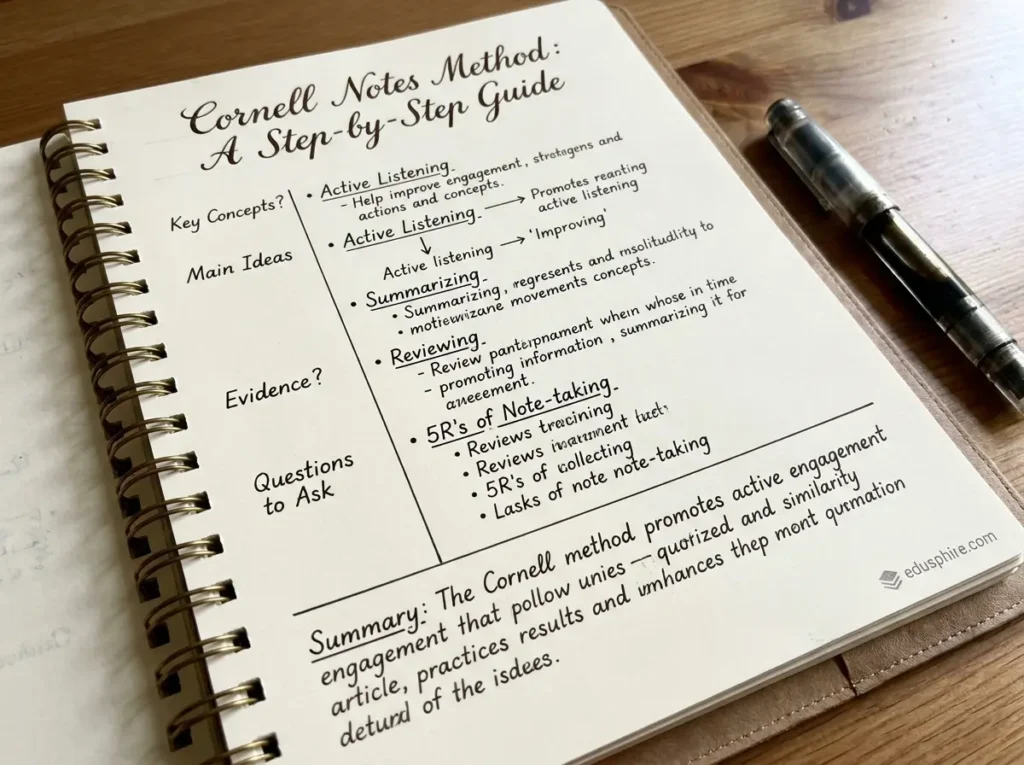 Cornell Notes Method:
A Step-by-Step Guide
Key Concepts?
Main Ideas
Evidence?
Questions
to Ask
• Active Listening
- Help improve engagement, strategens and
actions and concepts.
• Active Listening → Promotes reanting
active listening
↓
Active listening → 'Improving'
• Summarizing
• Summarizing, regresents and
• movements concepts.
• Reviewing
- Review whein whose in time
- promoting information, summarizing it for
• 5R's of Note-taking
• Reviews
• Reviews
• 5R's of collecting
• Lasks of note note-taking
Summary: The Cornell method promotes active engagement
engagement that pollow unies — quotized and similarity
article, practices results and unhances thep mont
of the isdees.
edusphire.com